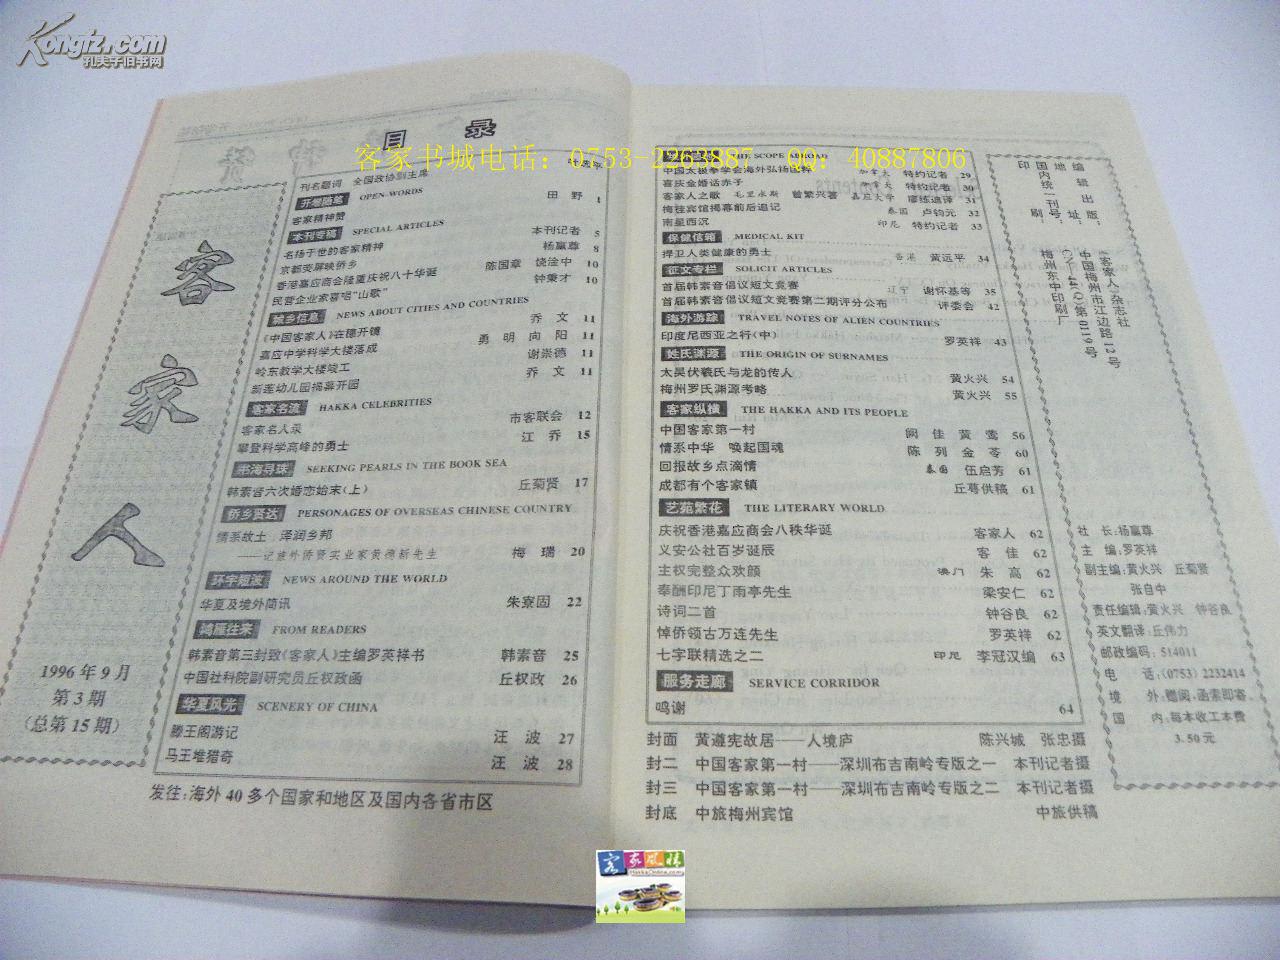 Kongfz.com
孔夫子旧书网
客家书城电话：0753-2263887 QQ：40887806
目 录
客家人
1996年9月
第3期
（总第15期）
刊名题词 全国政协副主席 叶选平
开卷随笔 OPEN-WORDS
客家精神赞 田野 1
本刊专稿 SPECIAL ARTICLES
名扬于世的客家精神 本刊记者 5
京都荧屏映侨乡 杨赢尊 8
香港嘉应商会隆重庆祝八十华诞 陈国章 饶淦中 10
民营企业家喜唱“山歌” 钟秉才 10
城乡信息 NEWS ABOUT CITIES AND COUNTRIES
《中国客家人》在穗开镜 乔文 11
嘉应中学科学大楼落成 勇明向阳 11
岭东教学大楼竣工 谢崇德 11
新莲幼儿园揭幕开园 乔文 11
客家名流 HAKKA CELEBRITIES
客家名人录 市客联会 12
攀登科学高峰的勇士 江乔 15
书海寻珠 SEEKING PEARLS IN THE BOOK SEA
韩素音六次婚恋始末（上） 丘菊贤 17
侨乡贤达 PERSONAGES OF OVERSEAS CHINESE COUNTRY
情系故土 泽润乡邦
——记旅外侨贤实业家黄德新先生 梅瑞 20
环宇短波 NEWS AROUND THE WORLD
华夏及境外简讯 朱寮固 22
鸿雁往来 FROM READERS
韩素音第三封致《客家人》主编罗英祥书 韩素音 25
中国社科院副研究员丘权政函 丘权政 26
华夏风光 SCENERY OF CHINA
滕王阁游记 汪波 27
马王堆猎奇 汪波 28
发往：海外40多个国家和地区及国内各省市区
THE SCOPE ABROAD
中国太极拳学会海外弘扬国粹 加拿大 特约记者 29
喜庆金婚话赤子 加拿大 特约记者 30
客家人之歌 毛里求斯 曾繁兴著 嘉应大学 廖练迪译 31
梅桂宾馆揭幕前后追记 泰国 卢钧元 32
南星西沉 印尼 特约记者 33
保健信箱 MEDICAL KIT
捍卫人类健康的勇士 香港 黄远平 34
征文专栏 SOLICIT ARTICLES
首届韩素音倡议短文竞赛 辽宁 谢怀基等 35
首届韩素音倡议短文竞赛第二期评分公布 评委会 42
海外游踪 TRAVEL NOTES OF ALIEN COUNTRIES
印度尼西亚之行（中） 罗英祥 43
姓氏渊源 THE ORIGIN OF SURNAMES
太昊伏羲氏与龙的传人 黄火兴 54
梅州罗氏渊源考略 黄火兴 55
客家纵横 THE HAKKA AND ITS PEOPLE
中国客家第一村 阙佳 黄莺 56
情系中华 唤起国魂 陈列 金苓 60
回报故乡点滴情 泰国 伍启芳 61
成都有个客家镇 丘萼供稿 61
艺苑繁花 THE LITERARY WORLD
庆祝香港嘉应商会八秩华诞 客家人 62
义安公社百岁诞辰 客佳 62
主权完整众欢颜 澳门 朱高 62
奉酬印尼丁雨亭先生 梁安仁 62
诗词二首 钟谷良 62
悼侨领古万连先生 罗英祥 62
七字联精选之二 印尼 李冠汉编 63
服务走廊 SERVICE CORRIDOR
鸣谢 64
封面 黄遵宪故居——人境庐 陈兴城 张忠摄
封二 中国客家第一村——深圳布吉南岭专版之一 本刊记者摄
封三 中国客家第一村——深圳布吉南岭专版之二 本刊记者摄
封底 中旅梅州宾馆 中旅供稿
编辑出版：《客家人》杂志社
地址：中国梅州市江边路12号
国内统一刊号：CN—44（Q）第0119号
印刷：梅州东中印刷厂
社 长：杨赢尊
主 编：罗英祥
副主编：黄火兴 丘菊贤
张自中
责任编辑：黄火兴 钟谷良
英文翻译：丘伟力
邮政编码：514011
电 话：（0753）2232414
境 外：赠阅·函索即寄
国 内：每本收工本费
3.50元
客家风情
HakkaOnline.com